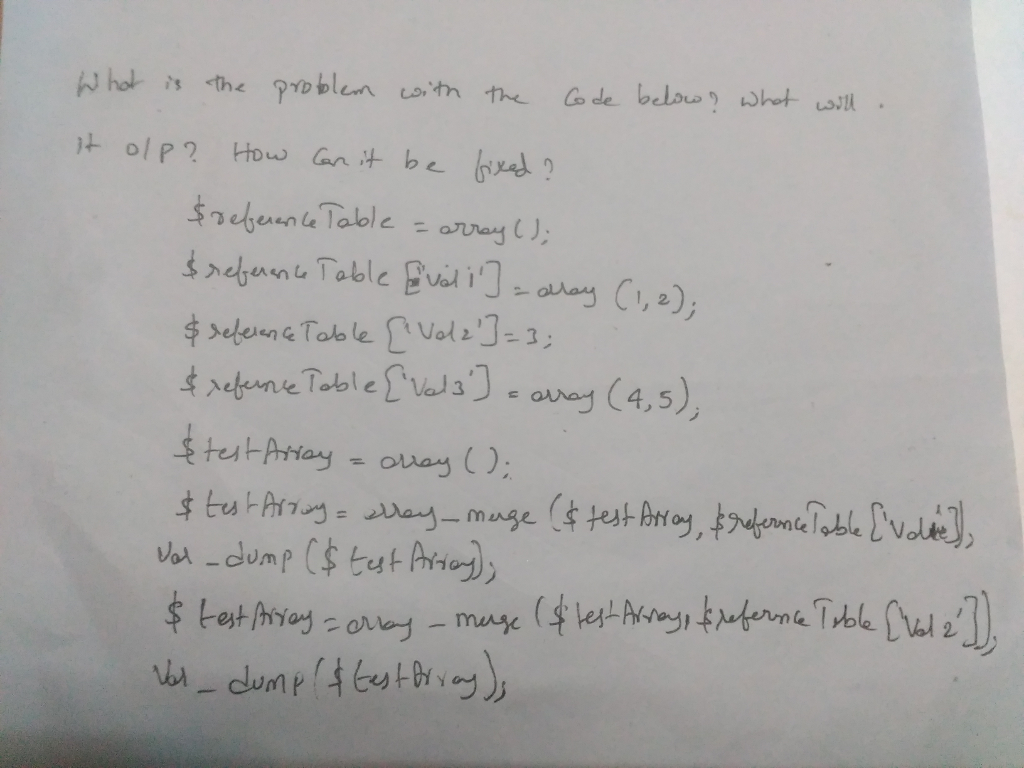 What is the problem with the Code below? What will
it o/p? How Can it be fixed?
$referenceTable = array();
$referenceTable['val1'] = array(1,2);
$referenceTable['Val2']=3;
$referenceTable['Val3'] = array(4,5);
$testArray = array();
$testArray = array_merge($testArray, $referenceTable[
Var_dump($testArray);
$testArray = array_merge($testArray, $referenceTable['Val2']);
Var_dump($testArray);